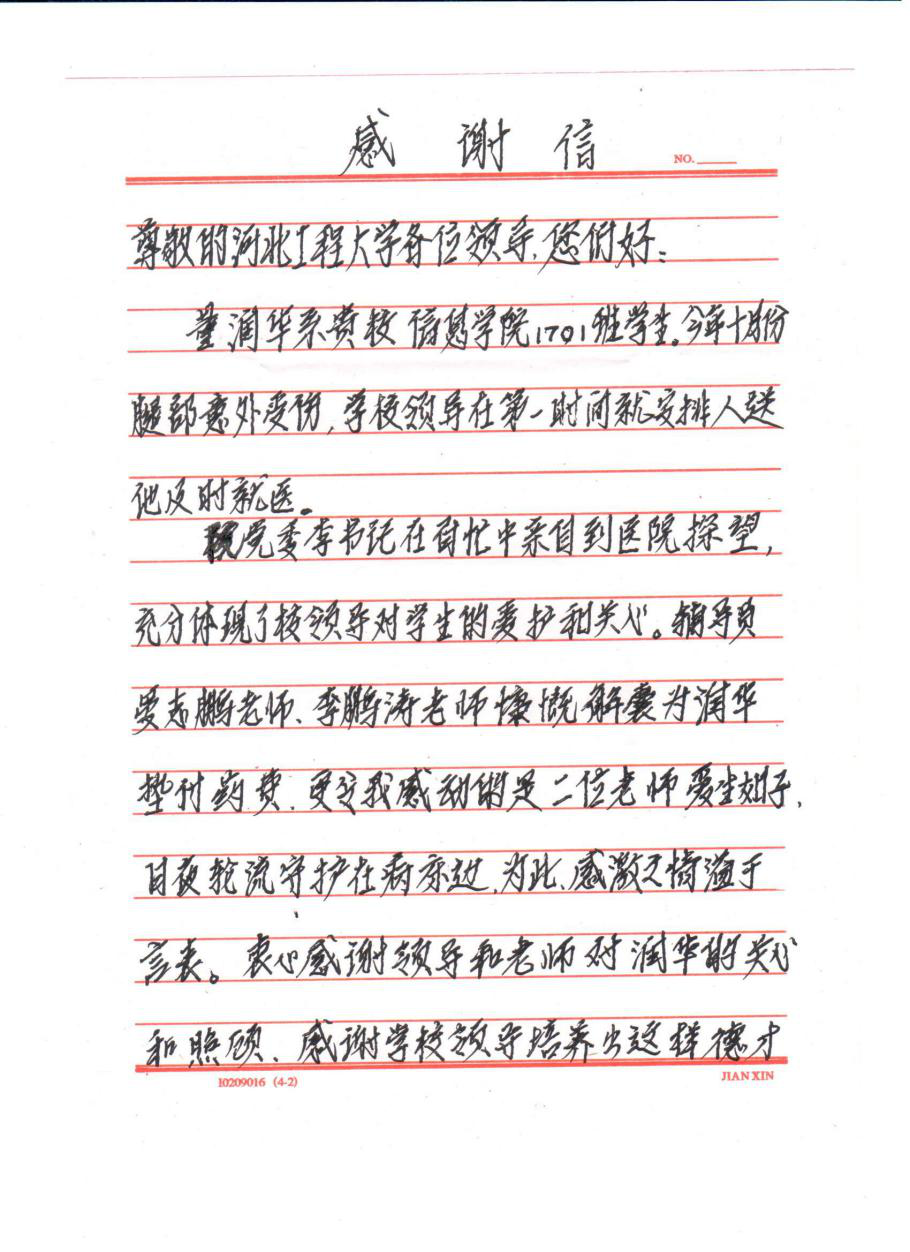 感谢信
NO.
尊敬的河北工程大学各位领导,您们好:
润华系贵校信息学院1701班学生。今年十月份
腿部意外受伤,学校领导在第一时间就安排人送
他及时就医。
党委李书记在百忙中亲自到医院探望,
充分体现了校领导对学生的爱护和关心。辅导员
志鹏老师、李鹏涛老师慷慨解囊为润华
垫付药费,更令我感动的是二位老师爱生如子,
日夜轮流守护在病床边,为此,感激之情溢于
言表。衷心感谢领导和老师对润华的关心
和照顾、感谢学校领导培养出这样德才
10209016 (4-2)
JIAN XIN